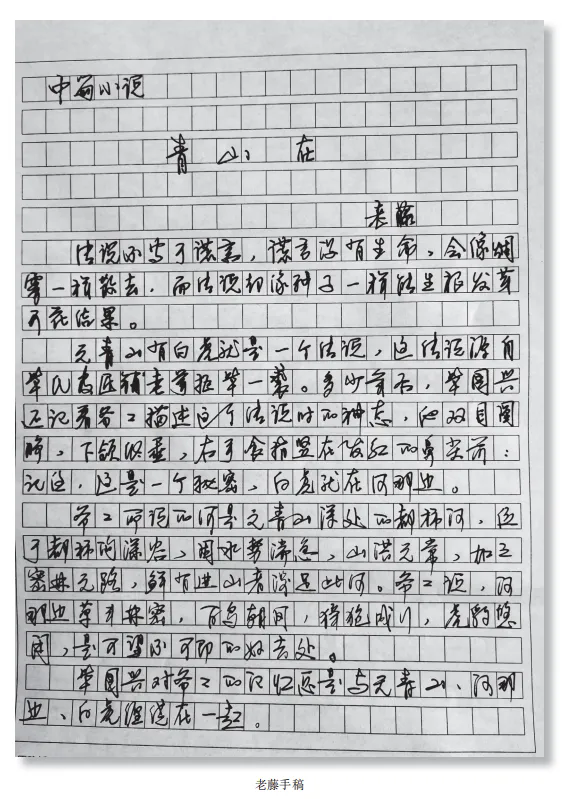 中篇小说
青山在
老藤
传说不写于谎言，谎言没有生命，会像烟
雾一样散去，而传说却像种子一样能生根发芽
开花结果。
元青山有白虎就是一个传说，这传说源自
草民 老爷 一袭。多少年后， 国兴
还记着爷爷描述这个传说时的神态，他双目圆
睁，下颌收垂，右手食指竖在发红的鼻尖前：
记住，这是一个秘密，白虎就在河那边。
爷爷所说的河是元青山深处的糊粥河，位
于糊粥沟深谷，因水势湍急，山洪无常，加之
密林无路，鲜有进山者涉足此河。爷爷说，河
那边草开林密，百鸟朝凤， 狍成群，虎豹悠
闲，是可望不可即的好去处。
国兴对爷爷的记忆总是与元青山、河那
边、白虎缠绕在一起。
老藤手稿